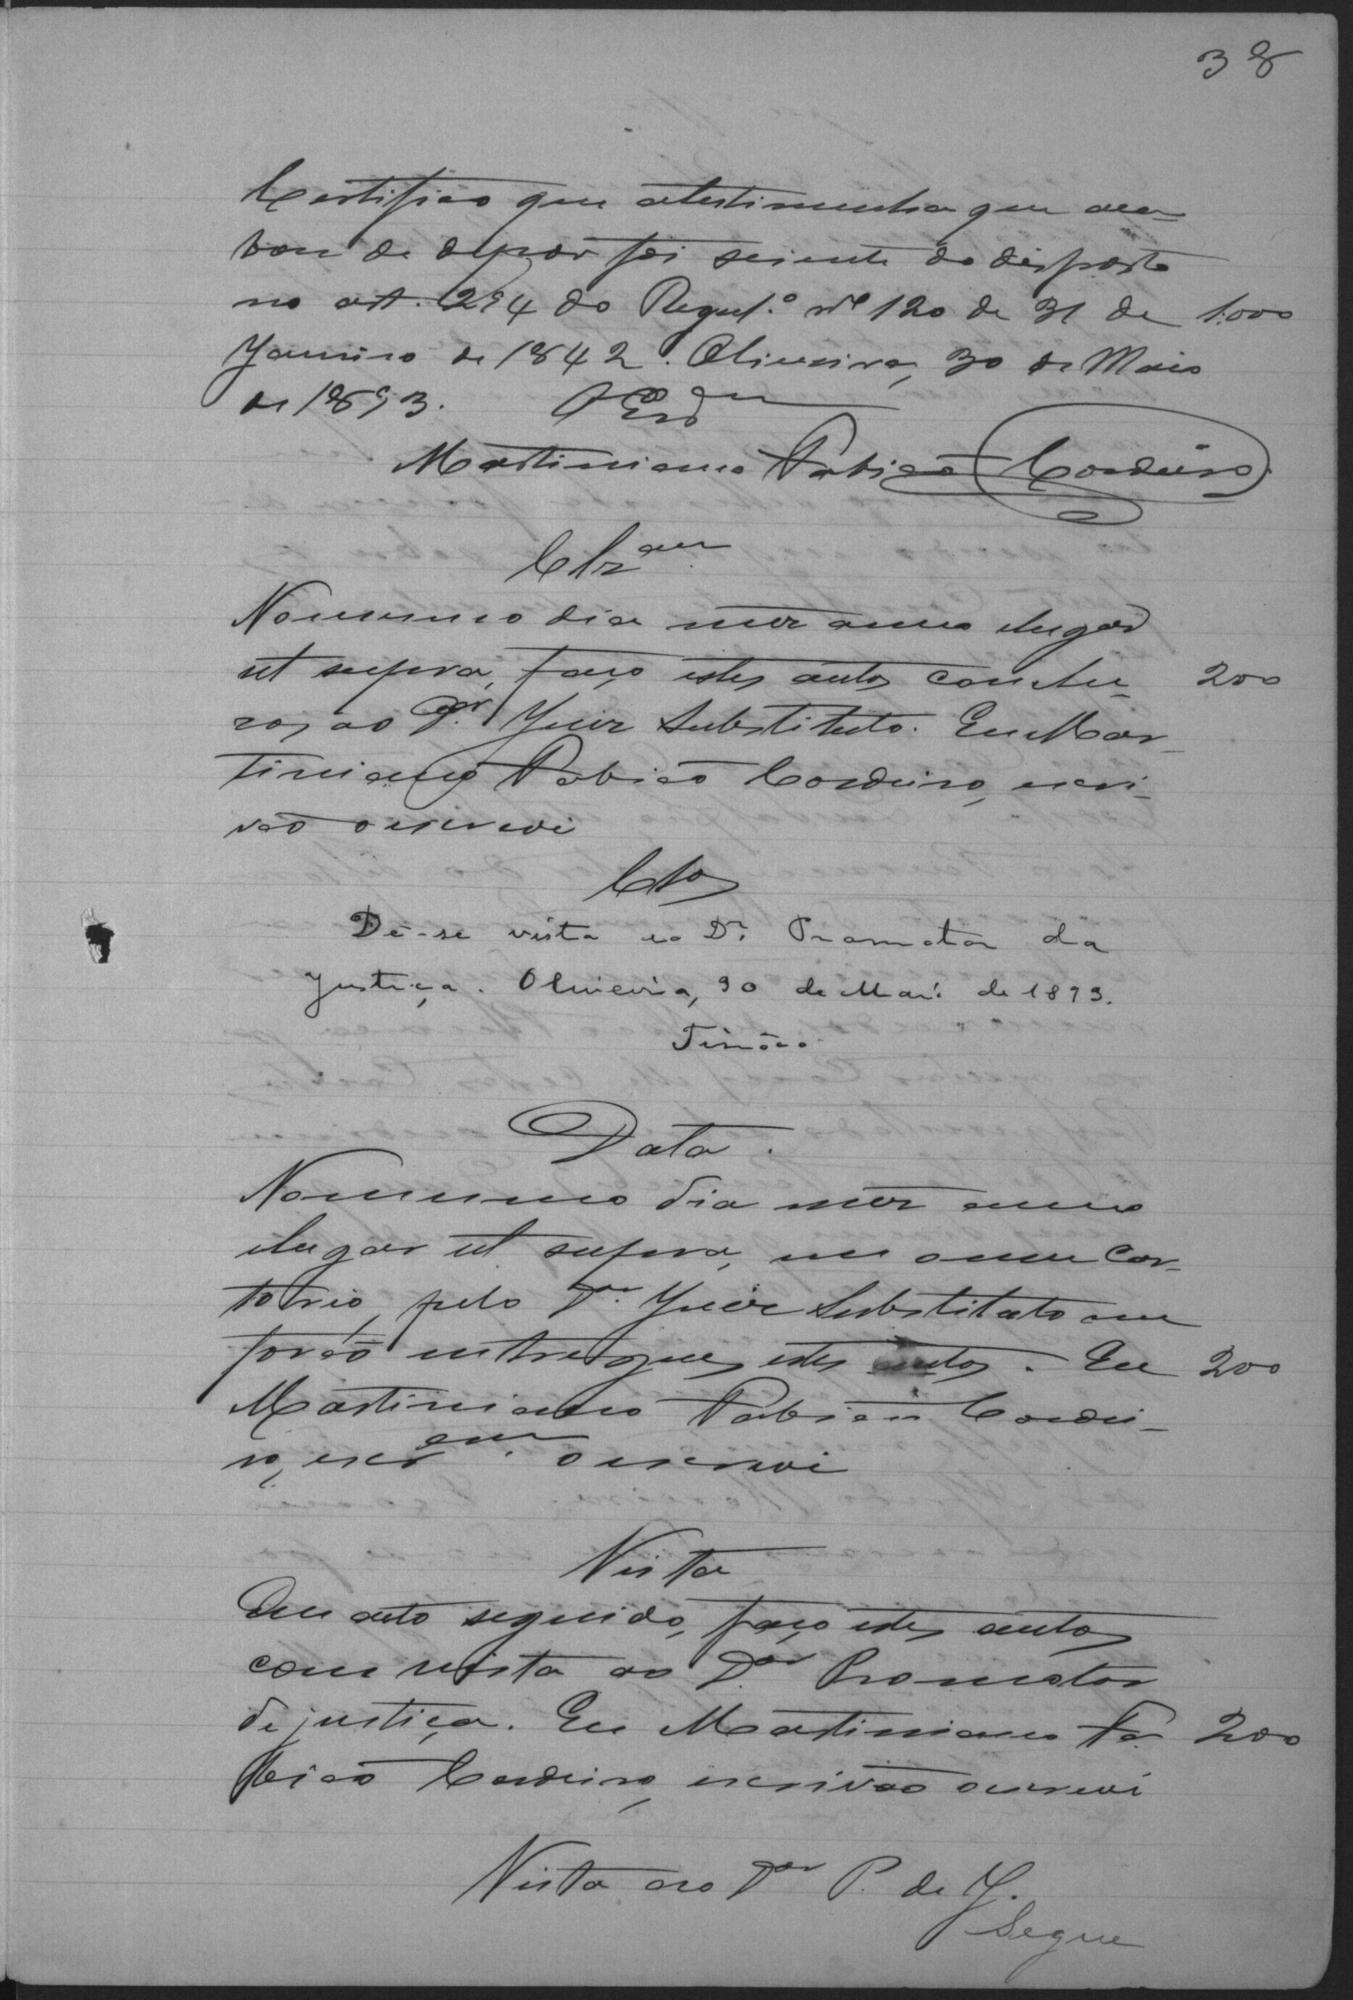 38
Certifico que atestimunha que aca-
bou de depor foi sciente do disposto
no art. 294 do Regul.º nº 120 de 31 de 1.000
Janeiro de 1842. Oliveira, 30 de Maio
de 1893. O Escram
Martiniano Fabião Cordeiro
Clzam
Nomesmo dia mez anno elugar
ut supra, faço estes autos conclu- 200
zos ao Dor. Juiz Substituto. Eu Mar-
tiniano Fabião Cordeiro, escri-
vão oescrevi
Clos
Dê-se vista ao Dr. Promotor da
Justiça. Oliveira, 30 de Maio de 1893.
Data.
Nomesmo dia mez anno
elugar ut supra, em omeu Car-
torio, pelo Dr. Juiz Substituto me
forão entregues estes autos. Eu 200
Martiniano Fabião Cordei-
ro, escram. o escrevi
Vista
Em acto seguido, faço estes autos
com vista ao Dor Promotor
de justiça. Eu Martiniano Fa- 200
bião Cordeiro, escrivão oescrevi
Vista ao Dor P. de J.
Segue